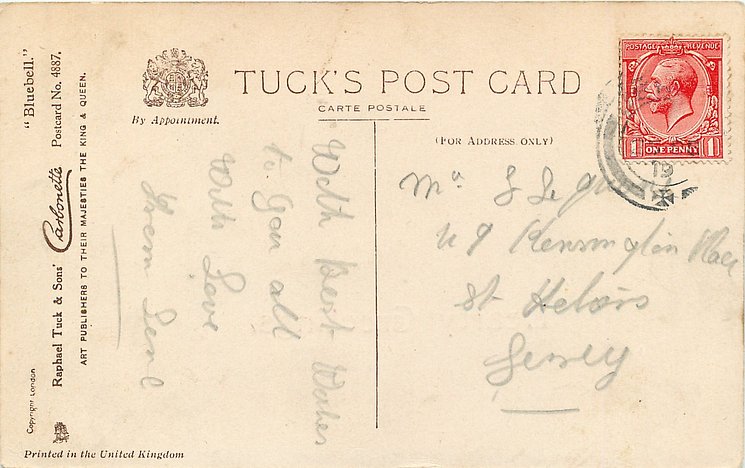 "Bluebell."
Raphael Tuck & Sons' Carbonette Postcard No. 4887.
ART PUBLISHERS TO THEIR MAJESTIES THE KING & QUEEN.
Copyright London
Printed in the United Kingdom
By Appointment.
TUCK'S POST CARD
CARTE POSTALE
(FOR ADDRESS ONLY)
POSTAGE REVENUE
1 ONE PENNY 1
19
With Best Wishes
to you all
With Love
from
Mrs S Le
Kensington Place
St Heliers
Jersey